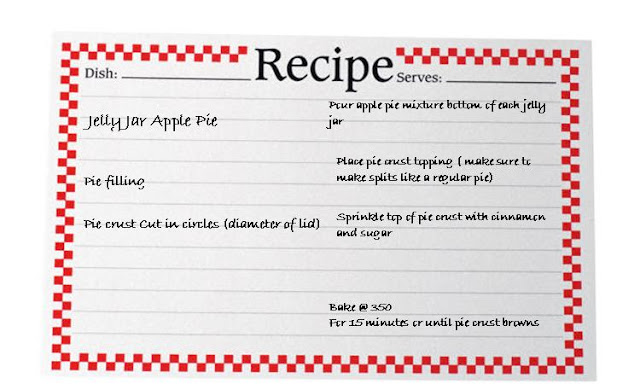 Recipe
Dish:
Serves:
Jelly Jar Apple Pie
Pie filling
Pie crust Cut in circles (diameter of lid)
Pour apple pie mixture bottom of each jelly
jar
Place pie crust topping ( make sure to
make splits like a regular pie)
Sprinkle top of pie crust with cinnamon
and sugar
Bake @ 350
For 15 minutes or until pie crust browns